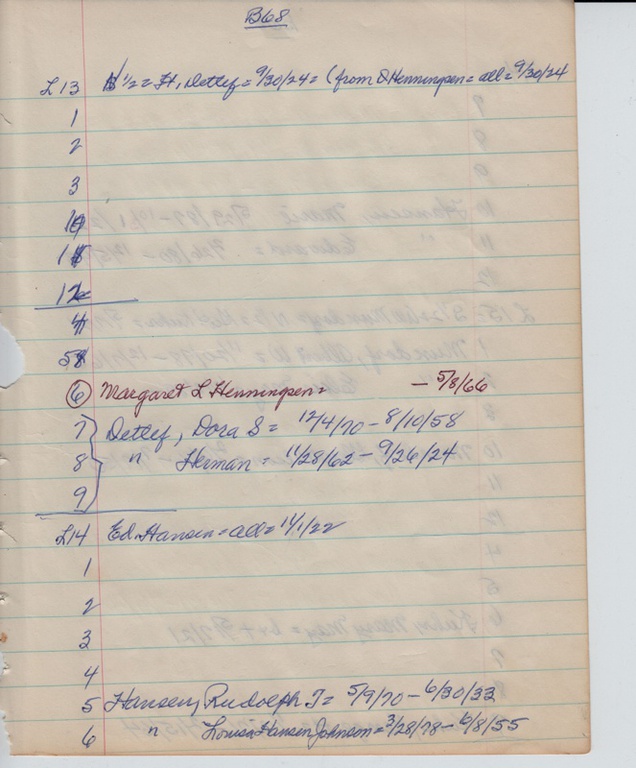 B68
L13 N 1/2 = H, Detlef = 9/30/24 = (from D Henningsen = all = 9/30/24
1
2
3
10
11
12
4
5
6 Margaret L Henningsen = - 5/8/66
7 Detlef, Dora S = 12/4/70 - 8/10/58
8 " Herman = 11/28/62 - 9/26/24
9
L14 Ed. Hansen = all = 11/1/22
1
2
3
4
5 Hansen, Rudolph T = 5/9/70 - 6/30/33
6 " Louisa Hansen Johnson = 3/28/78 - 6/8/55